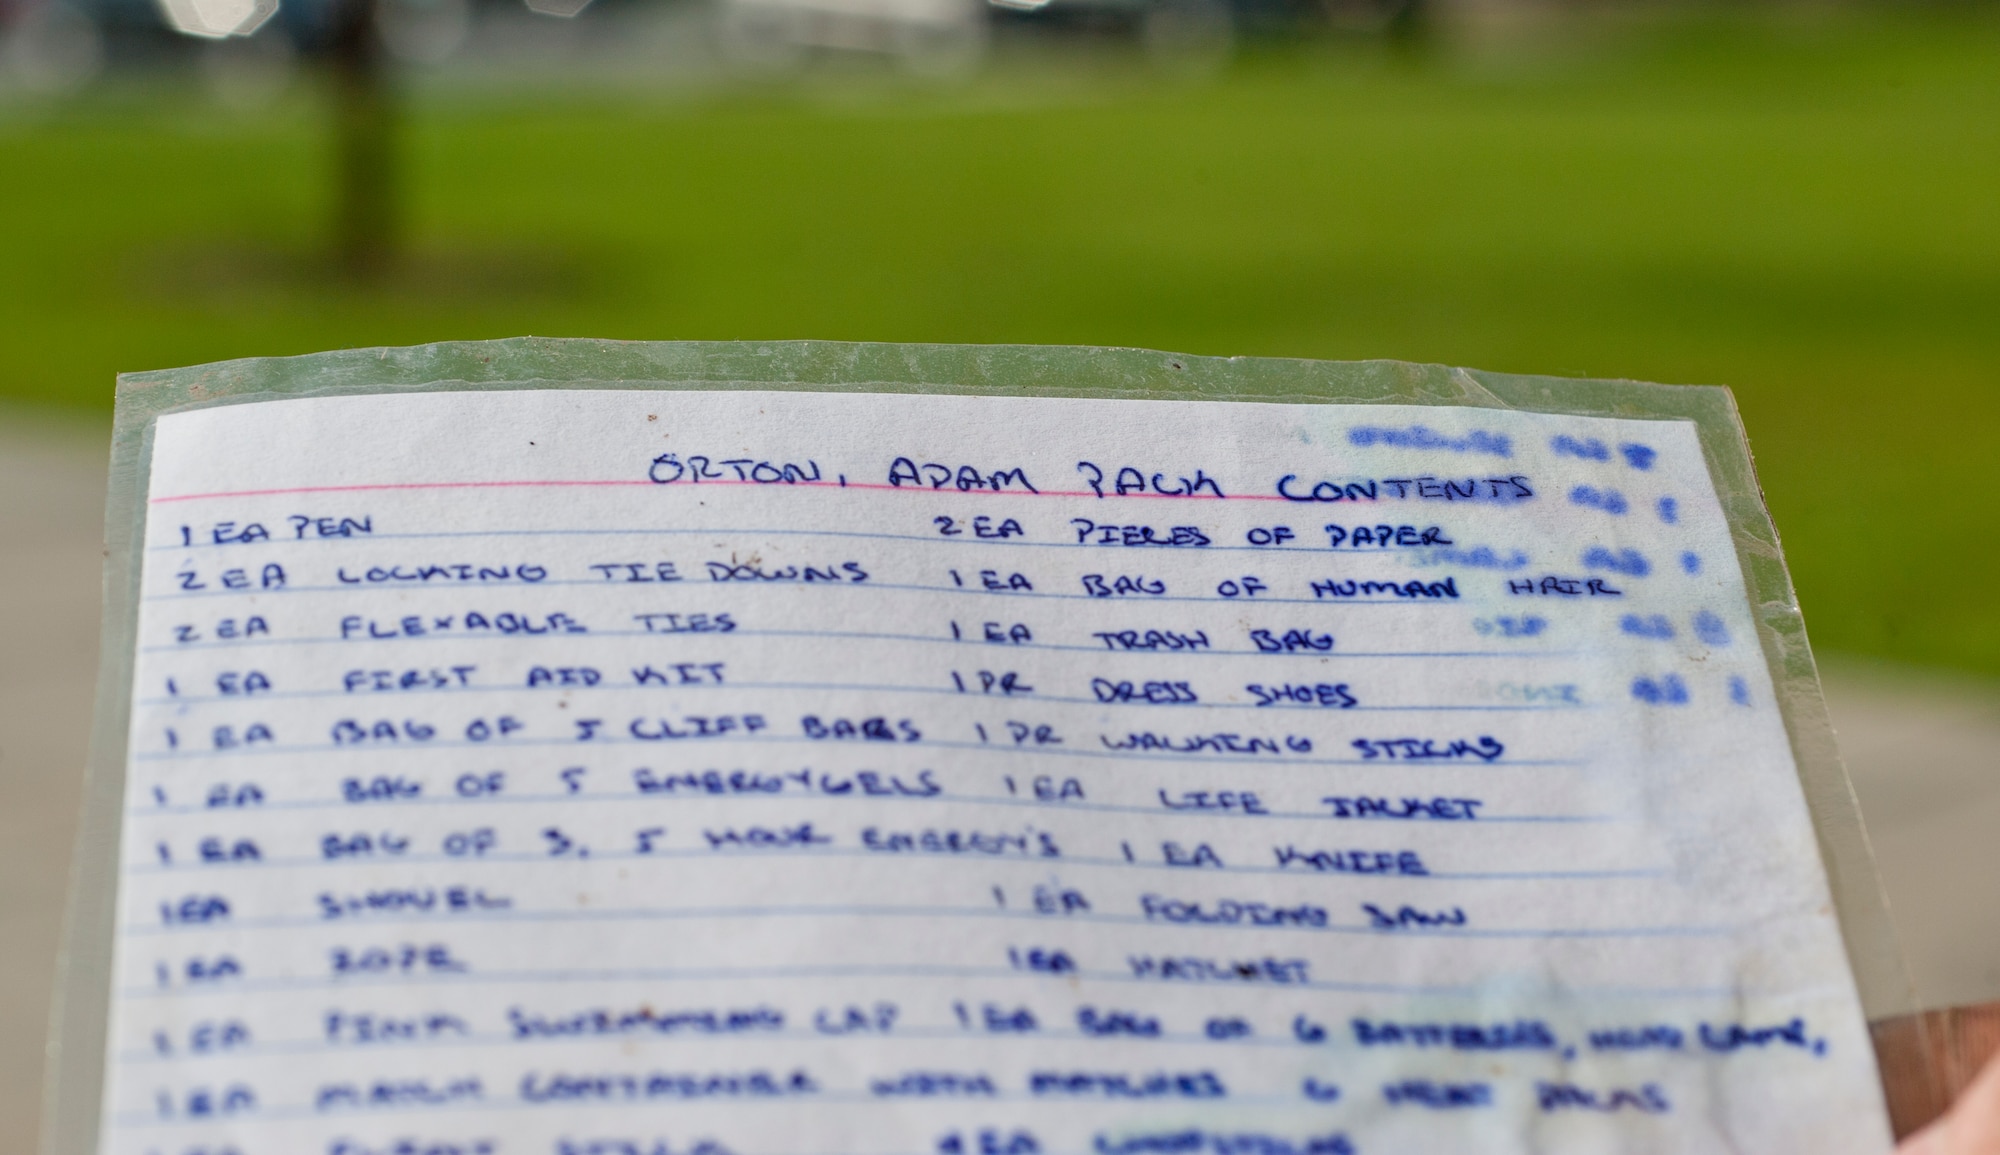 ORTON, ADAM PACK CONTENTS
1 EA PEN 2 EA PIECES OF PAPER
2 EA LOCKING TIE DOWNS 1 EA BAG OF HUMAN HAIR
2 EA FLEXABLE TIES 1 EA TRASH BAG
1 EA FIRST AID KIT 1 PR DRESS SHOES
1 EA BAG OF 5 CLIFF BARS 1 PR WALKING STICKS
1 EA BAG OF 5 ENERGYGELS 1 EA LIFE JACKET
1 EA BAG OF 3, 5 HOUR ENERGY'S 1 EA KNIFE
1 EA SHOVEL 1 EA FOLDING SAW
1 EA ROPE 1 EA HATCHET
1 EA PINK SWIMMING CAP 1 EA BAG OF 6 BATTERIES, HEAD LAMP,
1 EA MATCH CONTAINER WITH MATCHES 6 HEAT PACKS